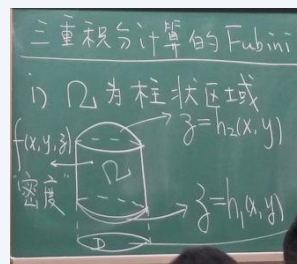 三重积分计算的Fubini
i) Ω为柱状区域
f(x,y,z)
z=h₂(x,y)
Ω
"密度"
z=h₁(x,y)
D